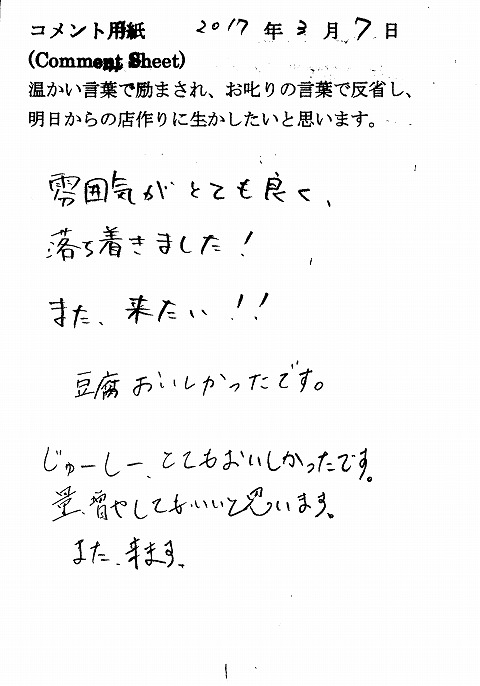 コメント用紙 2017年3月7日
(Comment Sheet)
温かい言葉で励まされ、お叱りの言葉で反省し、
明日からの店作りに生かしたいと思います。
雰囲気がとても良く、
落ち着きました!
また、来たい!!
豆腐おいしかったです。
じゅーしー、とてもおいしかったです。
量、増やしてもいいと思います。
また、来ます。